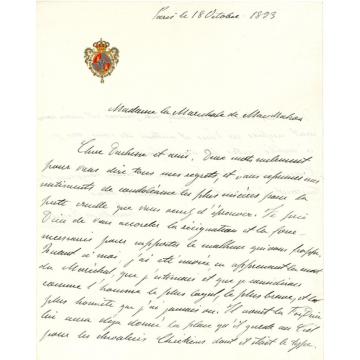 Paris le 18 Octobre 1893
Madame la Marechale de MacMahon
Chere Duchesse et amie. Deux mots seulement
pour vous dire tous mes regrets, et vous exprimer mes
sentiments de condoléance les plus sincères pour la
perte cruelle que vous venez d'éprouver. Je prie
Dieu de vous accorder la résignation et la force
necessaires pour supporter le malheur qui vous frappe.
Quant à moi, j'ai été navrée en apprenant la mort
du Maréchal, que j'estimais et que je considérais
comme l'homme le plus loyal, le plus brave, et le
plus honnête que j'ai jamais vu. Dieu
lui aura deja donné la place qu'il garde au Ciel
pour les chevaliers Chrétiens dont il était le type.